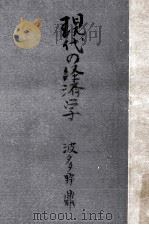 現代の経済学
波多野鼎